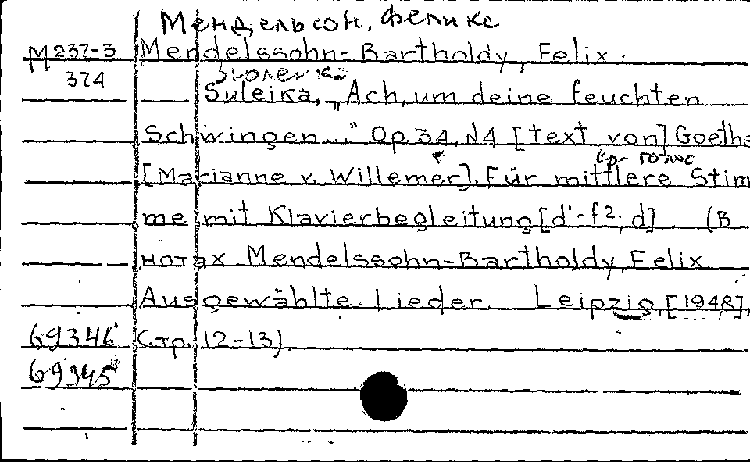 Мендельсон, Феликс
М 237-3 Mendelssohn-Bartholdy, Felix.
374
Suleika, "Ach, um deine feuchten
Schwingen..." Op. 34, N4 [text von] Goethe
ср. голос
[Marianne v. Willemer]. Für mittlere Stim
me mit Klavierbegleitung [d'-f2; d] (В
нотах Mendelssohn-Bartholdy, Felix
Ausgewählte Lieder. Leipzig, [1948],
69346 Стр. 12-13).
69345